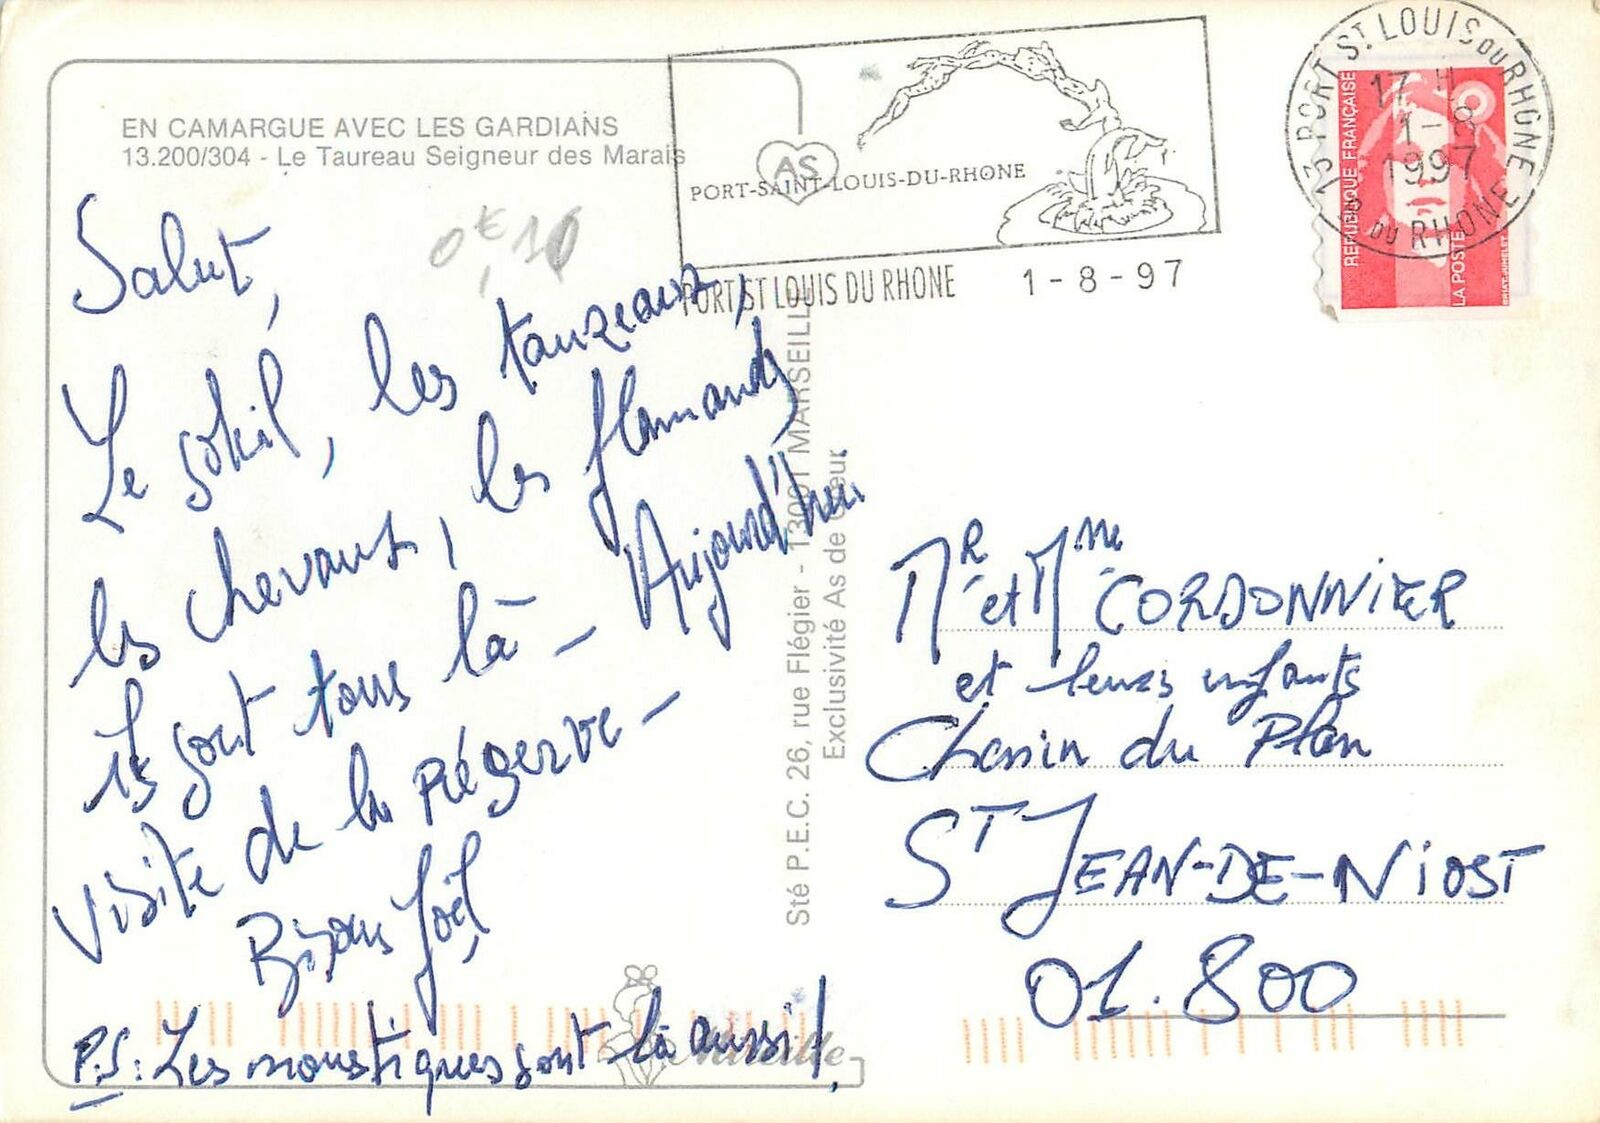 EN CAMARGUE AVEC LES GARDIANS
13.200/304 - Le Taureau Seigneur des Marais
AS
PORT-SAINT-LOUIS-DU-RHONE
PORT ST LOUIS DU RHONE 1-8-97
13 PORT ST LOUIS DU RHONE
17 H
1-8
1997
B. DU RHONE
REPUBLIQUE FRANÇAISE
LA POSTE
0€,10
Salut,
Le soleil, les taureaux,
les chevaux, les flamands
ils sont tous là - Aujourd'hui
visite de la réserve -
Bisous Joël
P.S: Les moustiques sont là aussi!
Mireille
Sté P.E.C. 26, rue Flégier - 13001 MARSEILLE
Exclusivité As de Coeur
Mr et Mme CORDONNIER
et leurs enfants
Chemin du Plan
ST JEAN-DE-NIOST
01.800